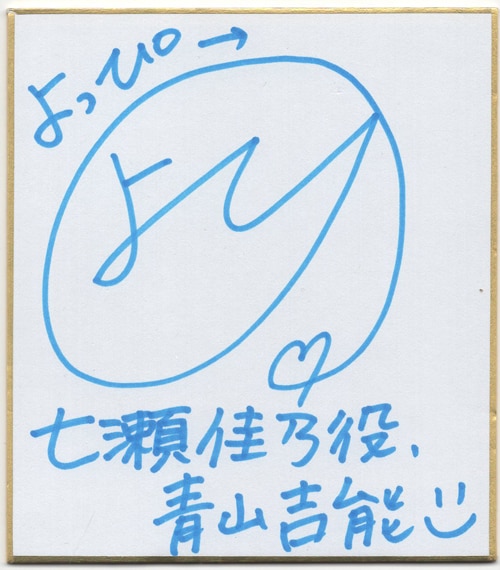 よっぴ→
よし
七瀬佳乃役、
青山吉能